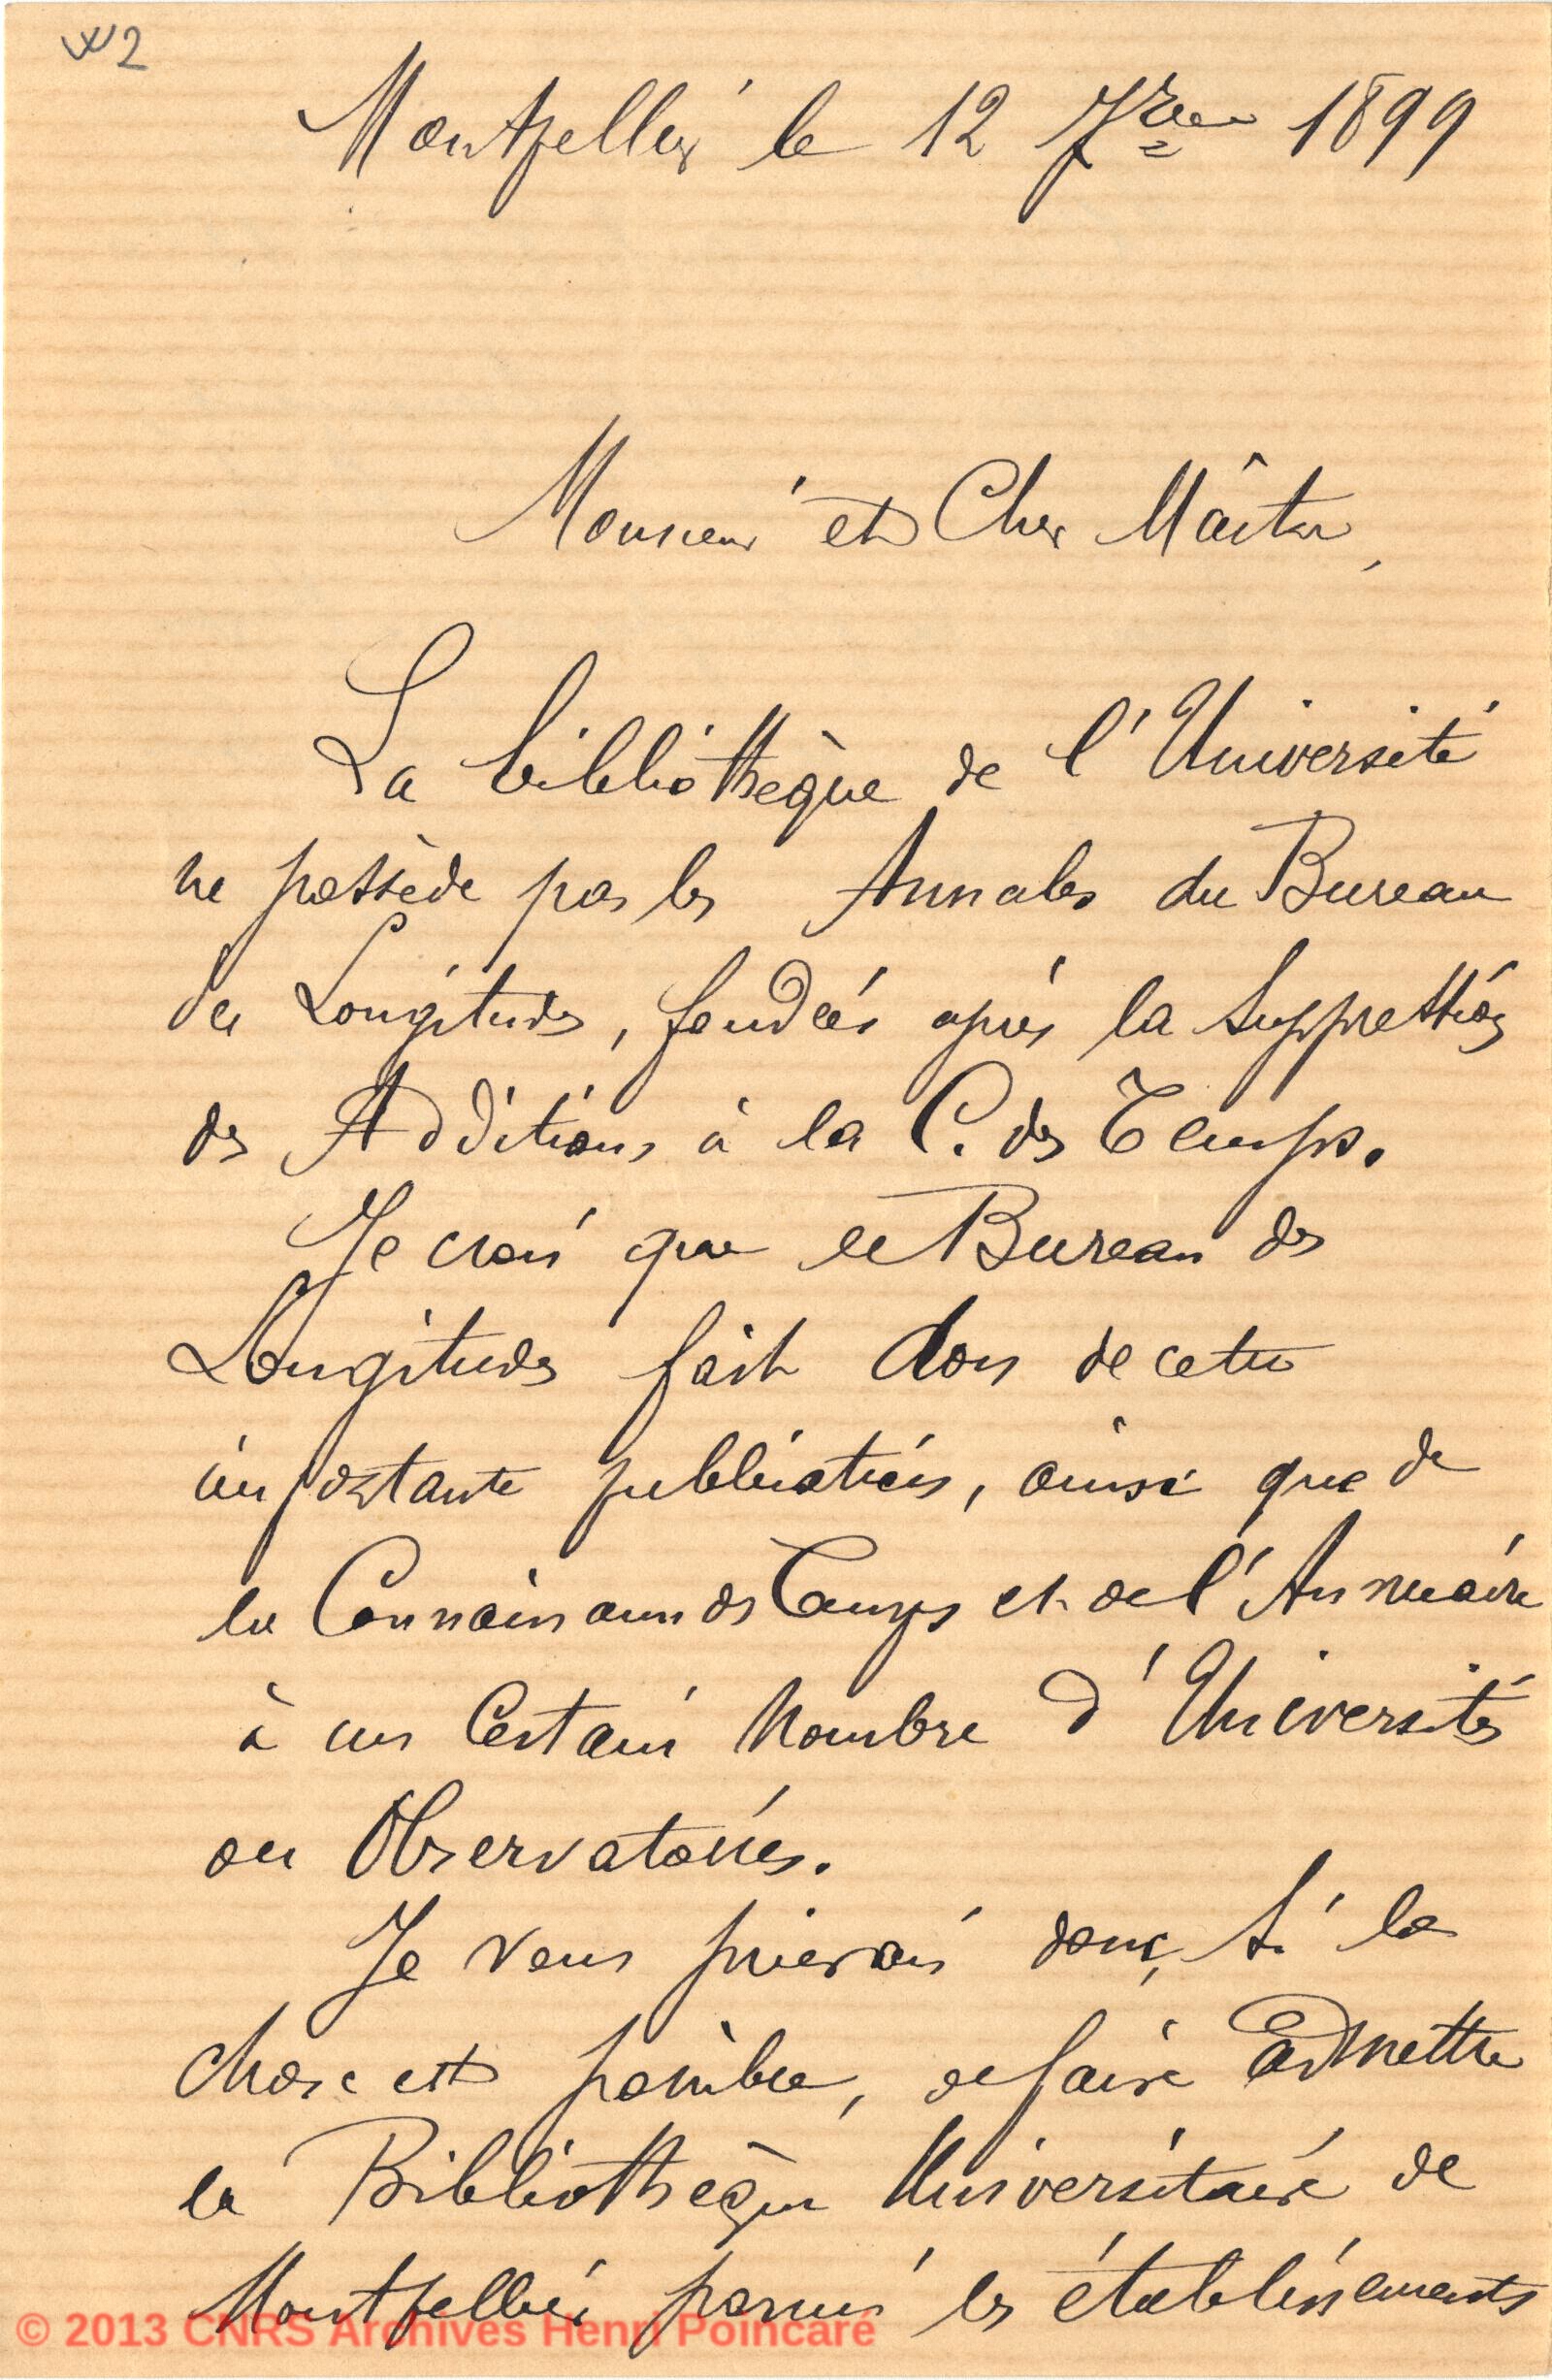 W2
Montpellier le 12 7bre 1899
Monsieur et Cher Maître,
La bibliothèque de l'Université
ne possède pas les Annales du Bureau
des Longitudes, fondées après la suppression
des Additions à la C. des Temps.
Je crois que le Bureau des
Longitudes fait don de cette
importante publication, ainsi que de
la Connaissance des Temps et de l'Annuaire
à un certain nombre d'Universités
ou Observatoires.
Je vous prierai donc, si la
chose est possible, de faire admettre
la Bibliothèque Universitaire de
Montpellier parmi les établissements
© 2013 CNRS Archives Henri Poincaré